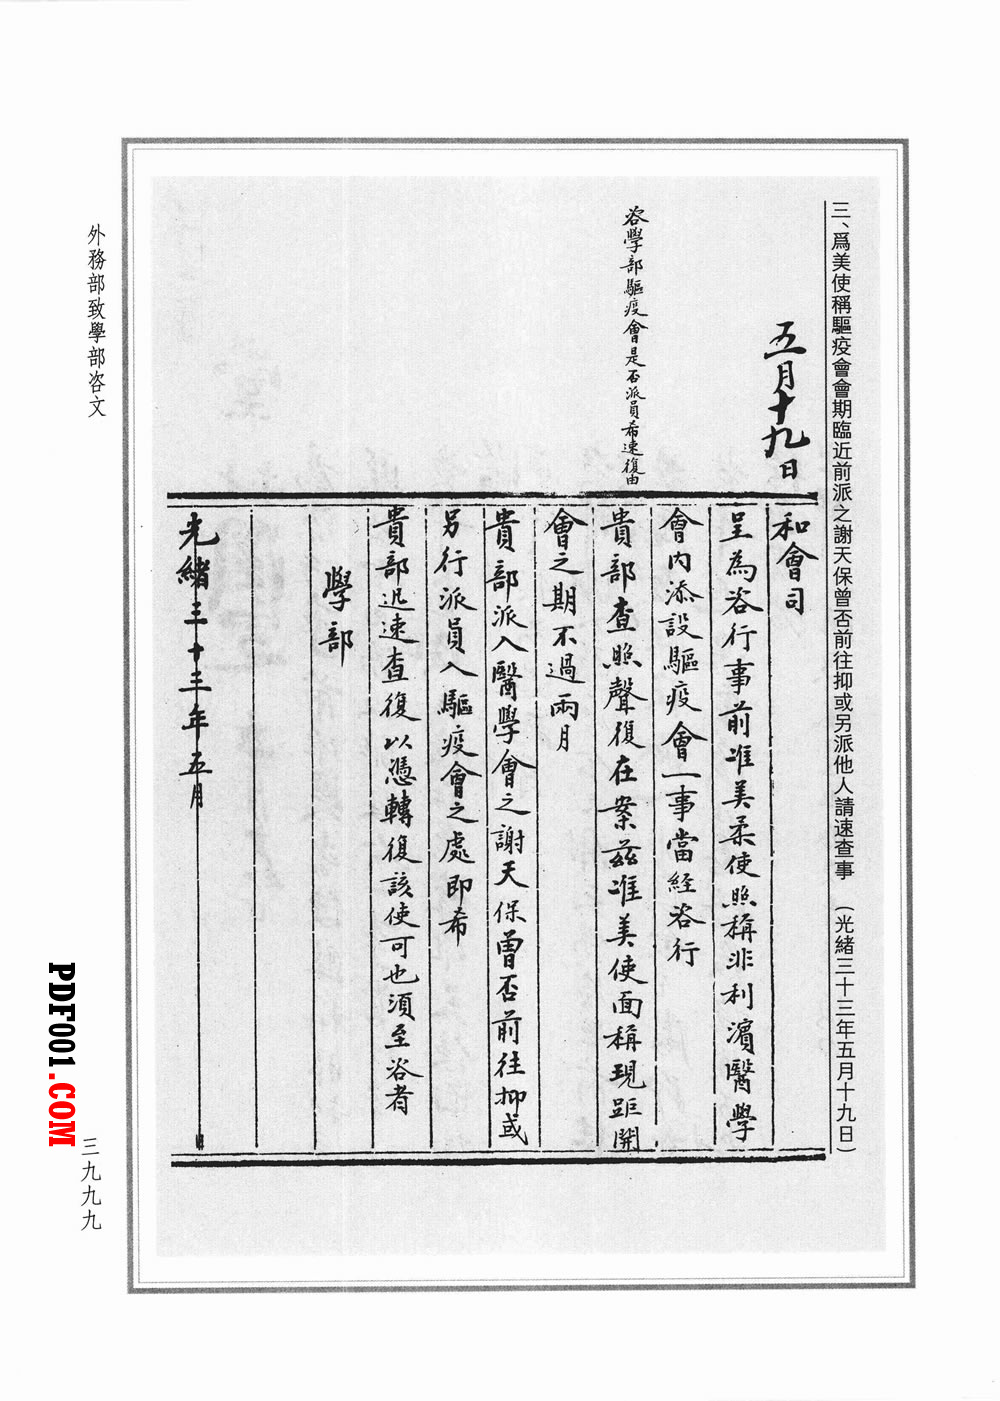 三、爲美使稱驅疫會會期臨近前派之謝天保曾否前往抑或另派他人請速查事 （光緒三十三年五月十九日）
五月十九日
咨學部驅疫會是否派員希速復由
和會司
呈為咨行事前准美柔使照稱非利濱醫學
會內添設驅疫會一事當經咨行
貴部查照聲復在案茲准美使面稱現距開
會之期不過兩月
貴部派入醫學會之謝天保曾否前往抑或
另行派員入驅疫會之處即希
貴部迅速查復以憑轉復該使可也須至咨者
學部
光緒三十三年五月 日
外務部致學部咨文
三九九九
PDF001.COM